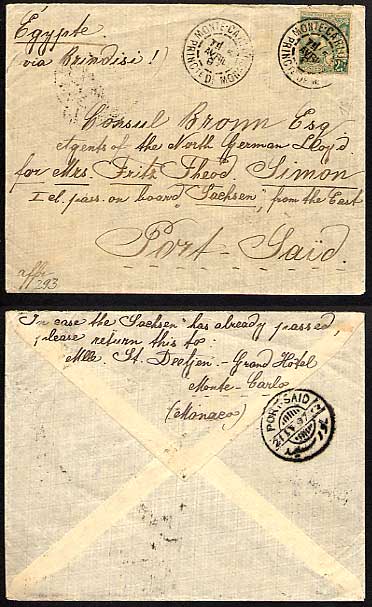 Égypte
(via Brindisi!)
MONTE-CARLO
PRINCIPTÉ DE MONACO
MONTE-CARLO
25
Consul Bronn Esq
Agents of the North German Lloyd
for Mrs. Fritz Theod. Simon
I cl. pass. on board "Sachsen", from the East
Port-Saïd.
293
In case the "Sachsen" has already passed,
please return this to:
Mlle. St. Deetjen - Grand Hôtel
Monte-Carlo
(Monaco)
PORT-SAID